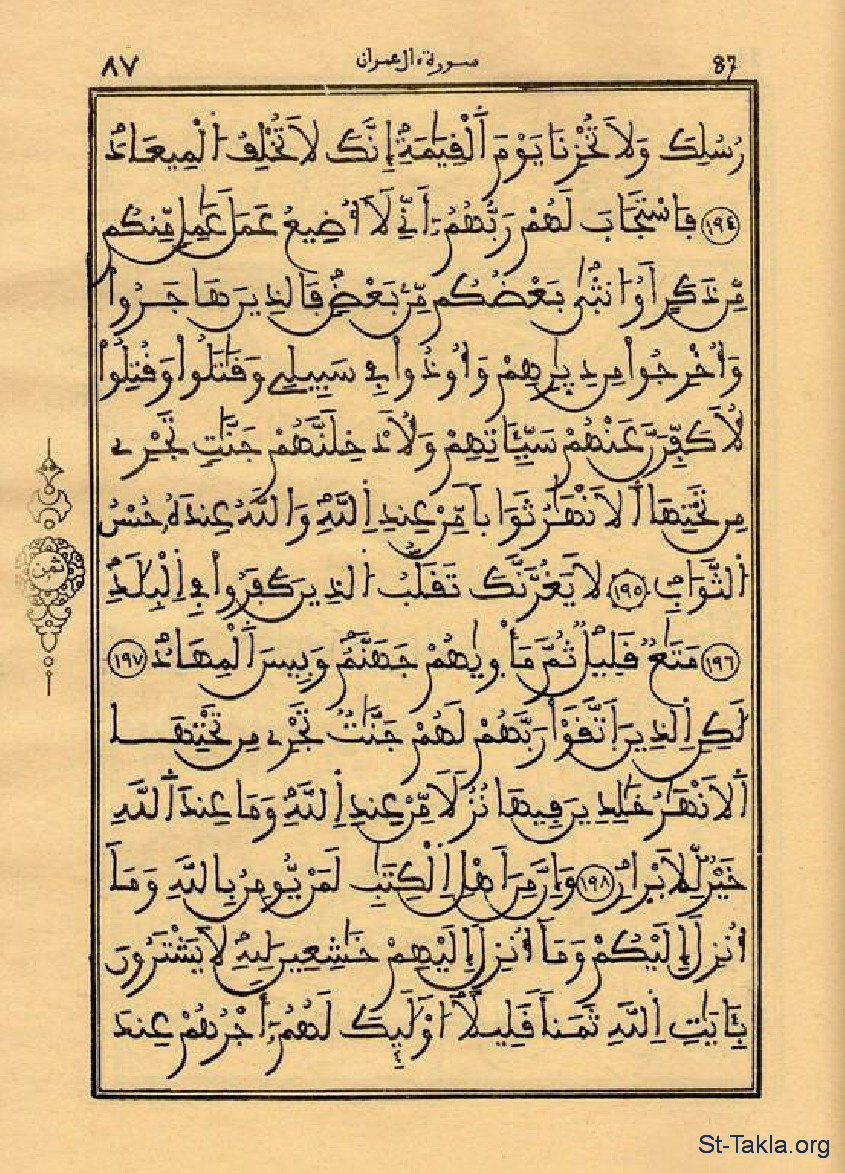 87 سورة ءال عمران ٨٧
رُسُلِكَ وَلَا تُخْزِنَا يَوْمَ اَلْقِيَٰمَةِ إِنَّكَ لَا تُخْلِفُ اُلْمِيعَادَ
(١٩٤) فَاسْتَجَابَ لَهُمْ رَبُّهُمُۥٓ أَنِّے لَآ أُضِيعُ عَمَلَ عَٰمِلٖ مِّنكُم
مِّن ذَكَرٍ اَوُ ا۟نثَىٰ بَعْضُكُم مِّنۢ بَعْضٖ فَالذِينَ هَاجَرُوا۟
وَأُخْرِجُوا۟ مِن دِيَٰرِهِمْ وَأُوذُوا۟ فِے سَبِيلِے وَقَٰتَلُوا۟ وَقُتِلُوا۟
لَأُكَفِّرَنَّ عَنْهُمْ سَيِّـَٔاتِهِمْ وَلَأُدْخِلَنَّهُمْ جَنَّٰتٖ تَجْرِے
مِن تَحْتِهَا اَلَانْهَٰرُ ثَوَاباٗ مِّنْ عِندِ اِللَّهِ وَاللَّهُ عِندَهُۥ حُسْنُ
اُلثَّوَابِ (١٩٥) لَا يَغُرَّنَّكَ تَقَلُّبُ اُلذِينَ كَفَرُوا۟ فِے اِلْبِلَٰدِ
(١٩٦) مَتَٰعٞ قَلِيلٞ ثُمَّ مَأْوَيٰهُمْ جَهَنَّمُ وَبِيسَ اَلْمِهَادُ (١٩٧)
لَٰكِنِ اِلذِينَ اَتَّقَوْا۟ رَبَّهُمْ لَهُمْ جَنَّٰتٞ تَجْرِے مِن تَحْتِهَا
اَلَانْهَٰرُ خَٰلِدِينَ فِيهَا نُزُلاٗ مِّنْ عِندِ اِللَّهِ وَمَا عِندَ اَللَّهِ
خَيْرٞ لِّلَابْرَارِ (١٩٨) وَإِنَّ مِنَ اَهْلِ اِلْكِتَٰبِ لَمَنْ يُّومِنُ بِاللَّهِ وَمَآ
أُنزِلَ إِلَيْكُمْ وَمَآ أُنزِلَ إِلَيْهِمْ خَٰشِعِينَ لِلهِ لَا يَشْتَرُونَ
بِـَٔايَٰتِ اِللَّهِ ثَمَناٗ قَلِيلاً ا۟وْلَٰٓئِكَ لَهُمُۥٓ أَجْرُهُمْ عِندَ
ثمن
St-Takla.org